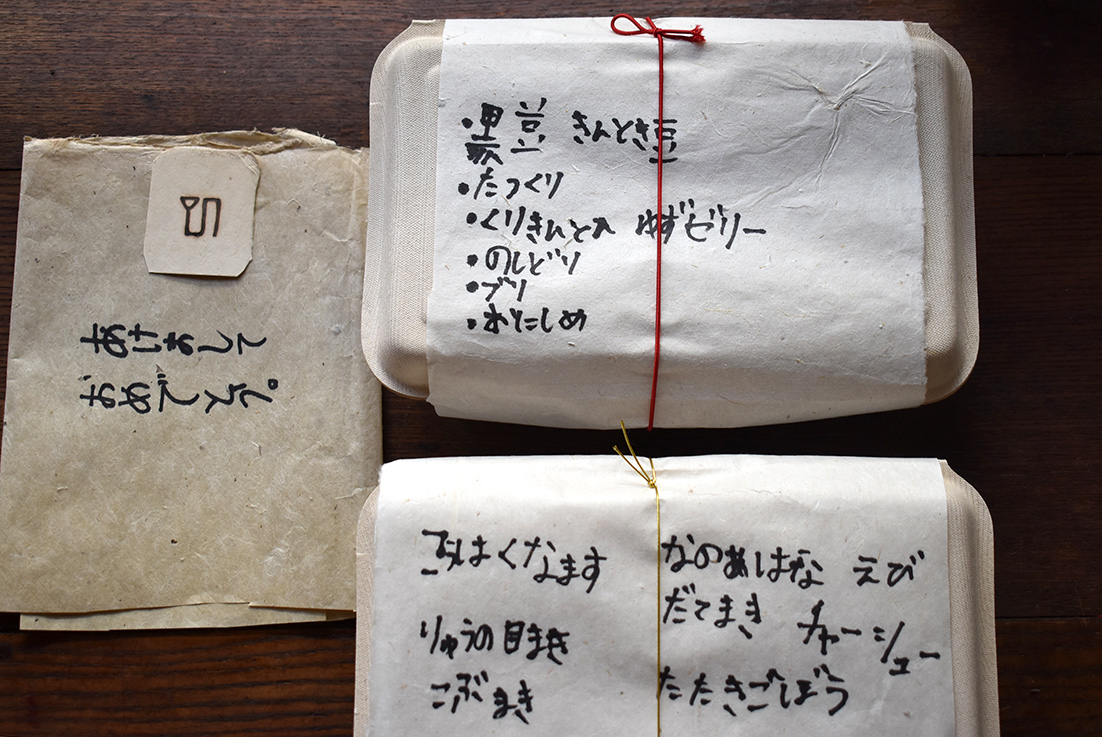 あけまして
おめでとう。
・黒豆 きんとき豆
・たつくり
・くりきんとん ゆずゼリー
・のしどり
・ブリ
・おにしめ
こうはくなます
りゅうの目まき
こぶまき
えび
だてまき チャーシュー
たたきごぼう